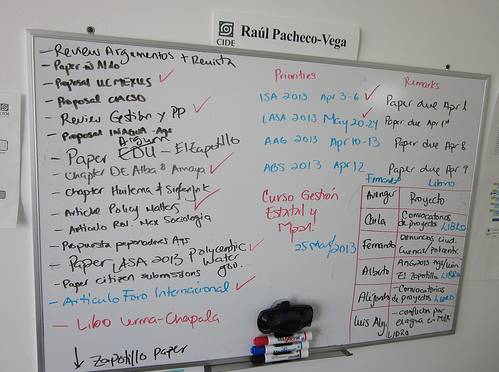 CIDE
Raúl Pacheco-Vega
- Review Argumentos + Revista
- Paper
- Proposal UC MEXUS
- Proposal
- Review Gestión y PP
- Proposal
Argum
- Paper EDU - El Zapotillo
- Chapter DE Alba & Amaya
- chapter Huitema &
- Article Policy Matters
- Articulo Rev. Mex Sociologia
- Propuesta pepenadores
- Paper LASA 2013 Polycentric
Water
gov.
- Paper citizen submissions
- Articulo Foro Internacional
- Libro Lerma-Chapala
↓ Zapotillo paper
Priorities
ISA 2013 Apr 3-6
LASA 2013 May 20-24
AAG 2013 Apr 10-13
ABS 2013 Apr 12
Curso Gestión
Estatal y
Mpal.
25 Mar/2013
Remarks
Paper due Apr 1
Paper due Apr 1st
Paper due Apr 8
Paper due Apr 9
Fernando Libro
Proyecto
Convocatorias
de proyectos LIBRO
Fernando Denuncias Ciud.
Alberto
El Zapotillo LIBRO
Alejandra - Convocatorias
de proyectos LIBRO
Luis Alg. - conflictos por
el agua en Mex
LIBRO